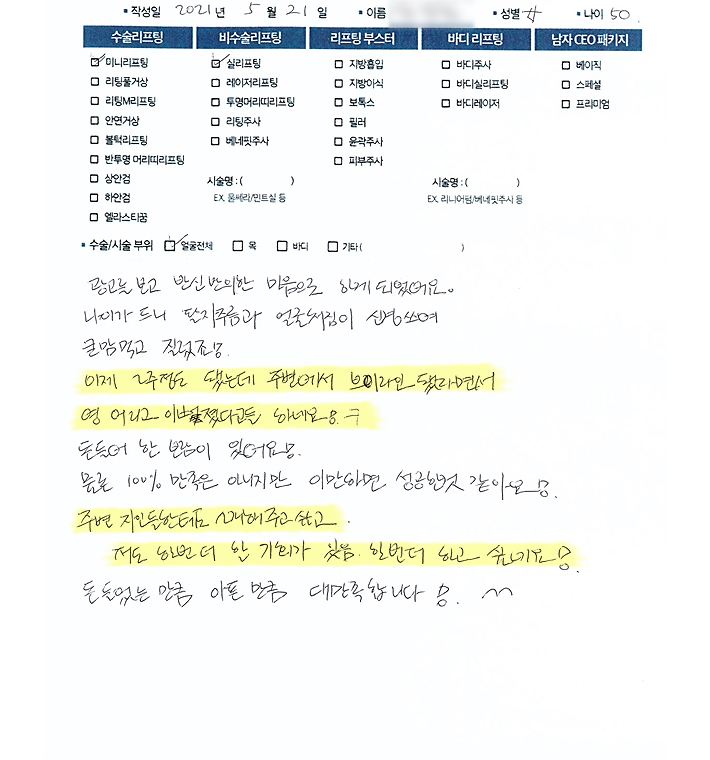 ▪ 작성일 2021 년 5 월 21 일 ▪ 이름 ▪ 성별 女 ▪ 나이 50.
수술리프팅 비수술리프팅 리프팅 부스터 바디 리프팅 남자 CEO 패키지
미니리프팅 실리프팅 지방흡입 바디주사 베이직
리팅풀거상 레이저리프팅 지방이식 바디실리프팅 스페셜
리팅M리프팅 투명머리띠리프팅 보톡스 바디레이저 프리미엄
안면거상 리팅주사 필러
볼턱리프팅 베네핏주사 윤곽주사
반투명 머리띠리프팅 피부주사
상안검 시술명 : ( ) 시술명 : ( )
하안검 EX. 울쎄라/민트실 등 EX. 리니어펌/베네핏주사 등
엘라스티꿈
▪ 수술/시술 부위 얼굴전체 목 바디 기타 ( )
광고를 보고 반신반의한 마음으로 하게 되었어요.
나이가 드니 팔자주름과 얼굴처짐이 신경쓰여
큰맘먹고 질렀죠!
이제 2주정도 됐는데 주변에서 브이라인 됐다면서
영 어리고 이뻐졌다고들 하네요!
돈들여 한 보람이 있어요!
물론 100% 만족은 아니지만 이만하면 성공한것 같아요!
주변 지인들한테도 소개해주고 싶고
저도 한번더 할 기회가 있음 한번더 하고 싶네요!
돈들었는 만큼 아픈 만큼 대만족합니다 !. ^^